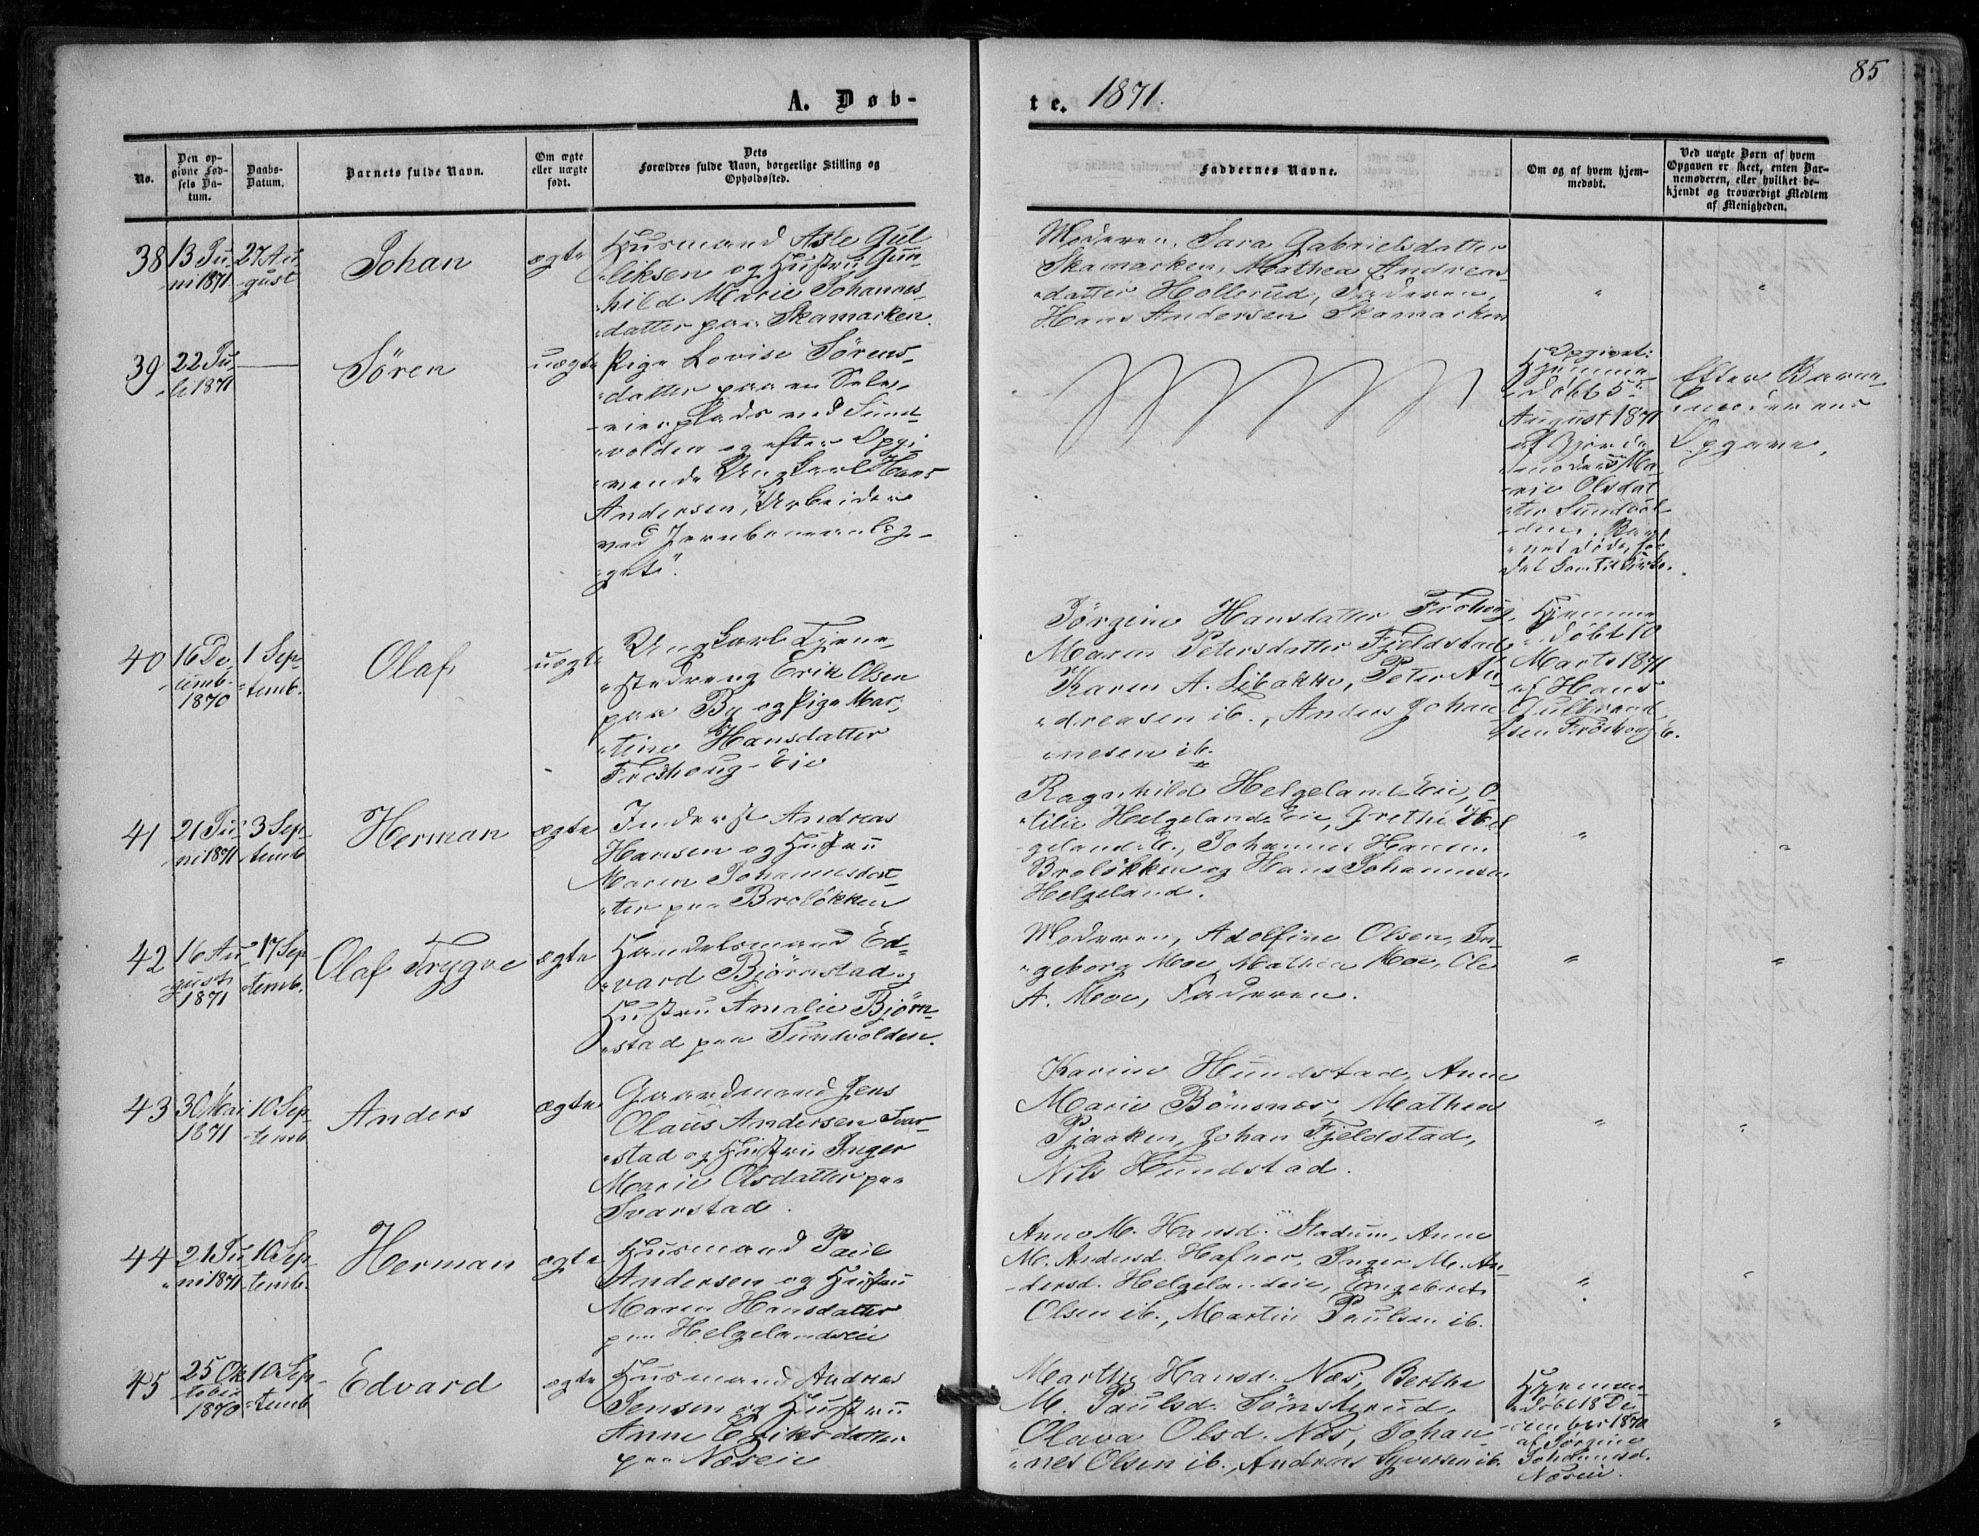 A. Døb-
te. 1871.
85
No.
Den op-
givne Fød-
sels Da-
tum.
Daabs-
Datum.
Barnets fulde Navn.
Om ægte
eller uægte
født.
Dets
Forældres fulde Navn, borgerlige Stilling og
Opholdssted.
Faddernes Navne.
Om og af hvem hjem-
medøbt.
Ved uægte Børn af hvem
Opgaven er skeet, enten Bar-
nemoderen, eller hvilket be-
kjendt og troværdigt Medlem
af Menigheden.
38
13 Ju-
ni 1871
27 Au-
gust
Johan
ægte
Husmand Asle Gul
liksen og Hustru Gun
hild Marie Johannes-
datter paa Skamarken.
Moderen, Sara Gabrielsdatter
Skamarken, Mathea Andreas
datter Hollerud, Faderen,
Hans Andersen Skamarken
"
"
39
22 Ju-
li 1871
Søren
uægte
Pige Lovise Sørens-
datter paa en Sele-
eierplads ved Sund-
volden og efter Opgi-
vende Ungkarl Hans
Andersen, "Arbeider
ved Jernbaneanlæg-
get".
Opgivet:
Hjemme
døbt 5t
August 1871
af Gjorde
moder Ma-
rie Olsdat
ter Sundvol-
den. Bar-
net døde, før
det kom til Kirke.
Efter Barne
moderens
Opgave.
40
16 De-
cemb.
1870
1 Sep-
temb.
Olaf
uægte
Ungkarl Tjene-
stedreng Erik Olsen
paa By og Pige Mar-
tine Hansdatter
Frøshoug-Eie
Jørgine Hansdatter Frøhoug,
Maren Petersdatter Fjeldstad
Karen A. Libakke, Peter An-
dreasen ib., Anders Johan-
nesen ib.
Hjemme
døbt 10
Marts 1871
af Hans
Gulbrand
sen Frøshoug E.
41
21 Ju-
ni 1871
3 Sep-
temb
Herman
ægte
Inderst Andreas
Hansen og Hustru
Maren Johannesdat-
ter paa Broløkken
Ragnhild Helgelands Eie, O-
tilie Helgelands Eie, Grethe Hel
geland-E., Johannes Hansen
Broløkken og Hans Johannesen
Helgeland.
"
"
42
16 Au-
gust
1871
17 Sep
temb.
Olaf Trygve
ægte
Handelsmand Ed-
vard Bjørnstad og
Hustru Amalie Bjørn-
stad paa Sundvolden.
Moderen, Adolfine Olsen, In-
geborg Moe, Mathea Moe, Ole
A. Moe, Faderen.
"
"
43
30 Mai
1871
10 Sep-
temb
Anders
ægte
Gaardmand Jens
Olaus Andersen Svar-
stad og Hustru Inger
Marie Olsdatter paa
Svarstad.
Karine Hundstad, Anne
Marie Bønsnæs, Mathea
Pjaaken, Johan Fjeldstad,
Nils Hundstad.
"
"
44
21 Ju-
ni 1871
10 Sep-
temb.
Herman
ægte
Husmand Paul
Andersen og Hustru
Maren Hansdatter
paa Helgelandseie
Anne M. Hansd. Stadum, Anne
M. Andersd. Hafnor, Inger M. An-
dersd. Helgelandeie, Engebret
Olsen ib., Martin Paulsen ib.
"
"
45
25 Ok
tober
1870
10 Sep-
temb
Edvard
ægte
Husmand Andreas
Jensen og Hustru
Anne Eriksdatter
paa Næseie.
Marthe Hansd. Næs, Berthe
M. Paulsd. Sønsterud,
Olava Olsd. Næs, Johan-
nes Olsen ib., Andreas Syversen ib.
Hjemme
døbt 18 De
cember 1870
af Jørgine
Johannesd.
Næseie.
"